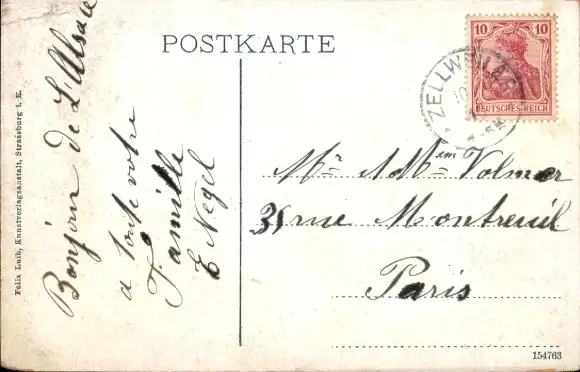 POSTKARTE
Bonjour de L'Alsace
a toute votre
Famille
E Negel
Felix Luib, Kunstverlagsanstalt, Strassburg i. E.
10 10
DEUTSCHES REICH
ZELLWEILER
Mr & Mme Volmer
35 rue Montreuil
Paris
154763